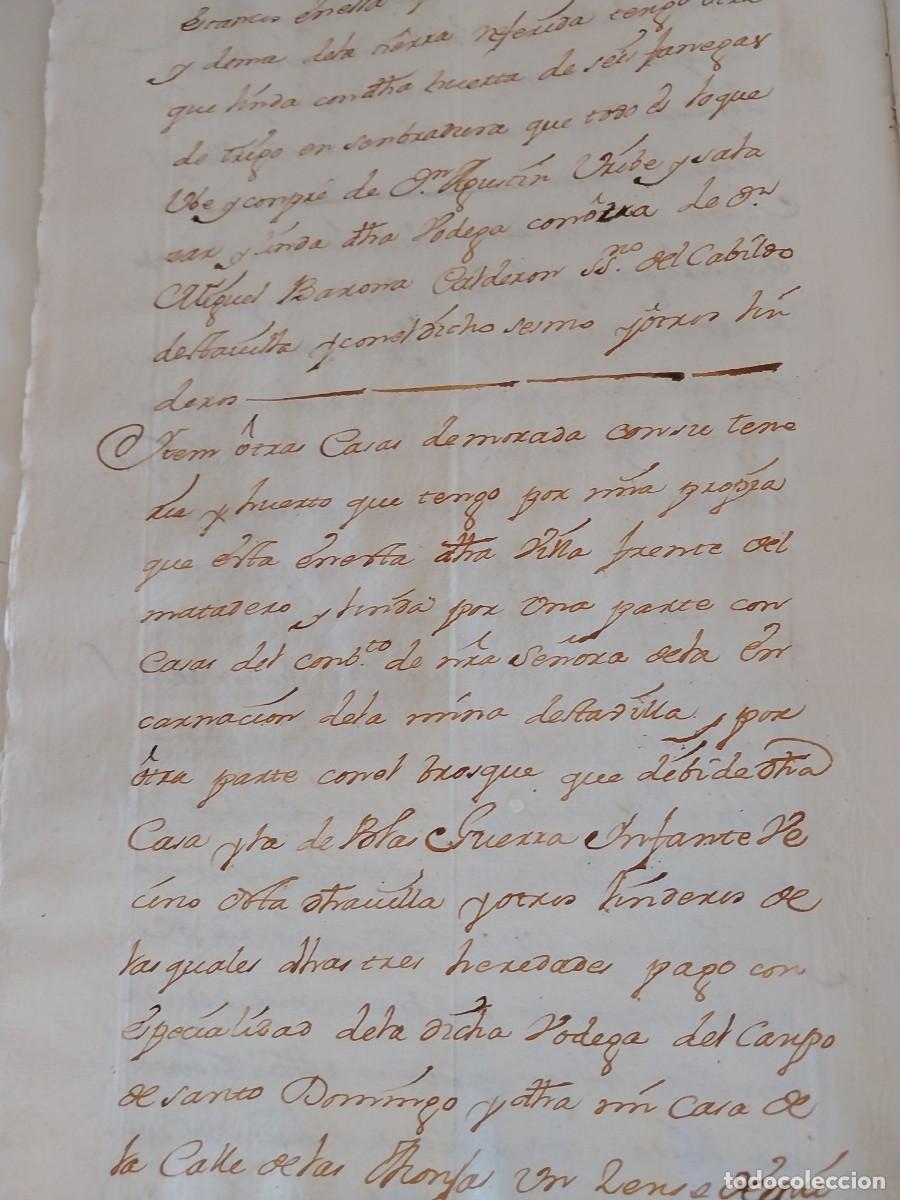 y doma dela tierra referida tengo otra
que linda con dha huerta de seis fanegas
de trigo en senbradura que todo es lo que
Vbe y conpré de Dn Agustin Vribe y Sala
zar y linda dha Vodega con ôtra de Dn
Miguel Barona Calderon SSno. del Cabildo
desta villa y con el dicho sesmo y ôtros lin
deros
Ytem ôtras Casas demorada con su tene
ria y huerto que tengo por mia propia
que esta en esta dha Villa frente del
matadero y linda por Vna parte con
Casas del conbto. de nra Señora dela En
carnacion dela mina desta Villa y por
ôtra parte con el bosque que debide dha
Casa y la de Blas Guerra Infante Ve
cino desta dha villa y otros linderos de
las quales dhas tres heredades pago con
Especialidad dela dicha Vodega del Canpo
de Santo Domingo y dha mi Casa de
la Calle de las Vn Zenso
todocoleccion